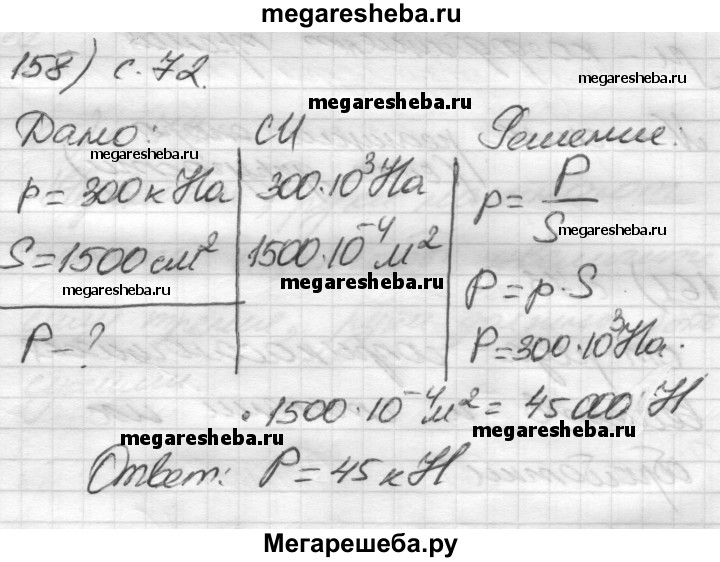 megaresheba.ru
158) с. 72.
megaresheba.ru
megaresheba.ru
Дано: СИ Решение:
megaresheba.ru
p = 300 кПа 300·10³ Па p = P/S
megaresheba.ru
S = 1500 см² 1500·10⁻⁴ м² P = p·S
megaresheba.ru
megaresheba.ru
P - ? P = 300·10³ Па·
·1500·10⁻⁴ м² = 45 000 Н
megaresheba.ru
megaresheba.ru
Ответ: P = 45 кН
Мегарешеба.ру